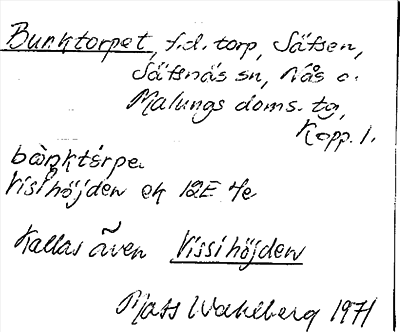 Bunktorpet, f.d. torp, Säfsen,
Säfsnäs sn, Nås o.
Malungs doms. tg,
Kopp. l.
bàŋktə̀rpe
Vissihöjden ek 12E 4e
Kallas även Vissihöjden
Mats Wahlberg 1971